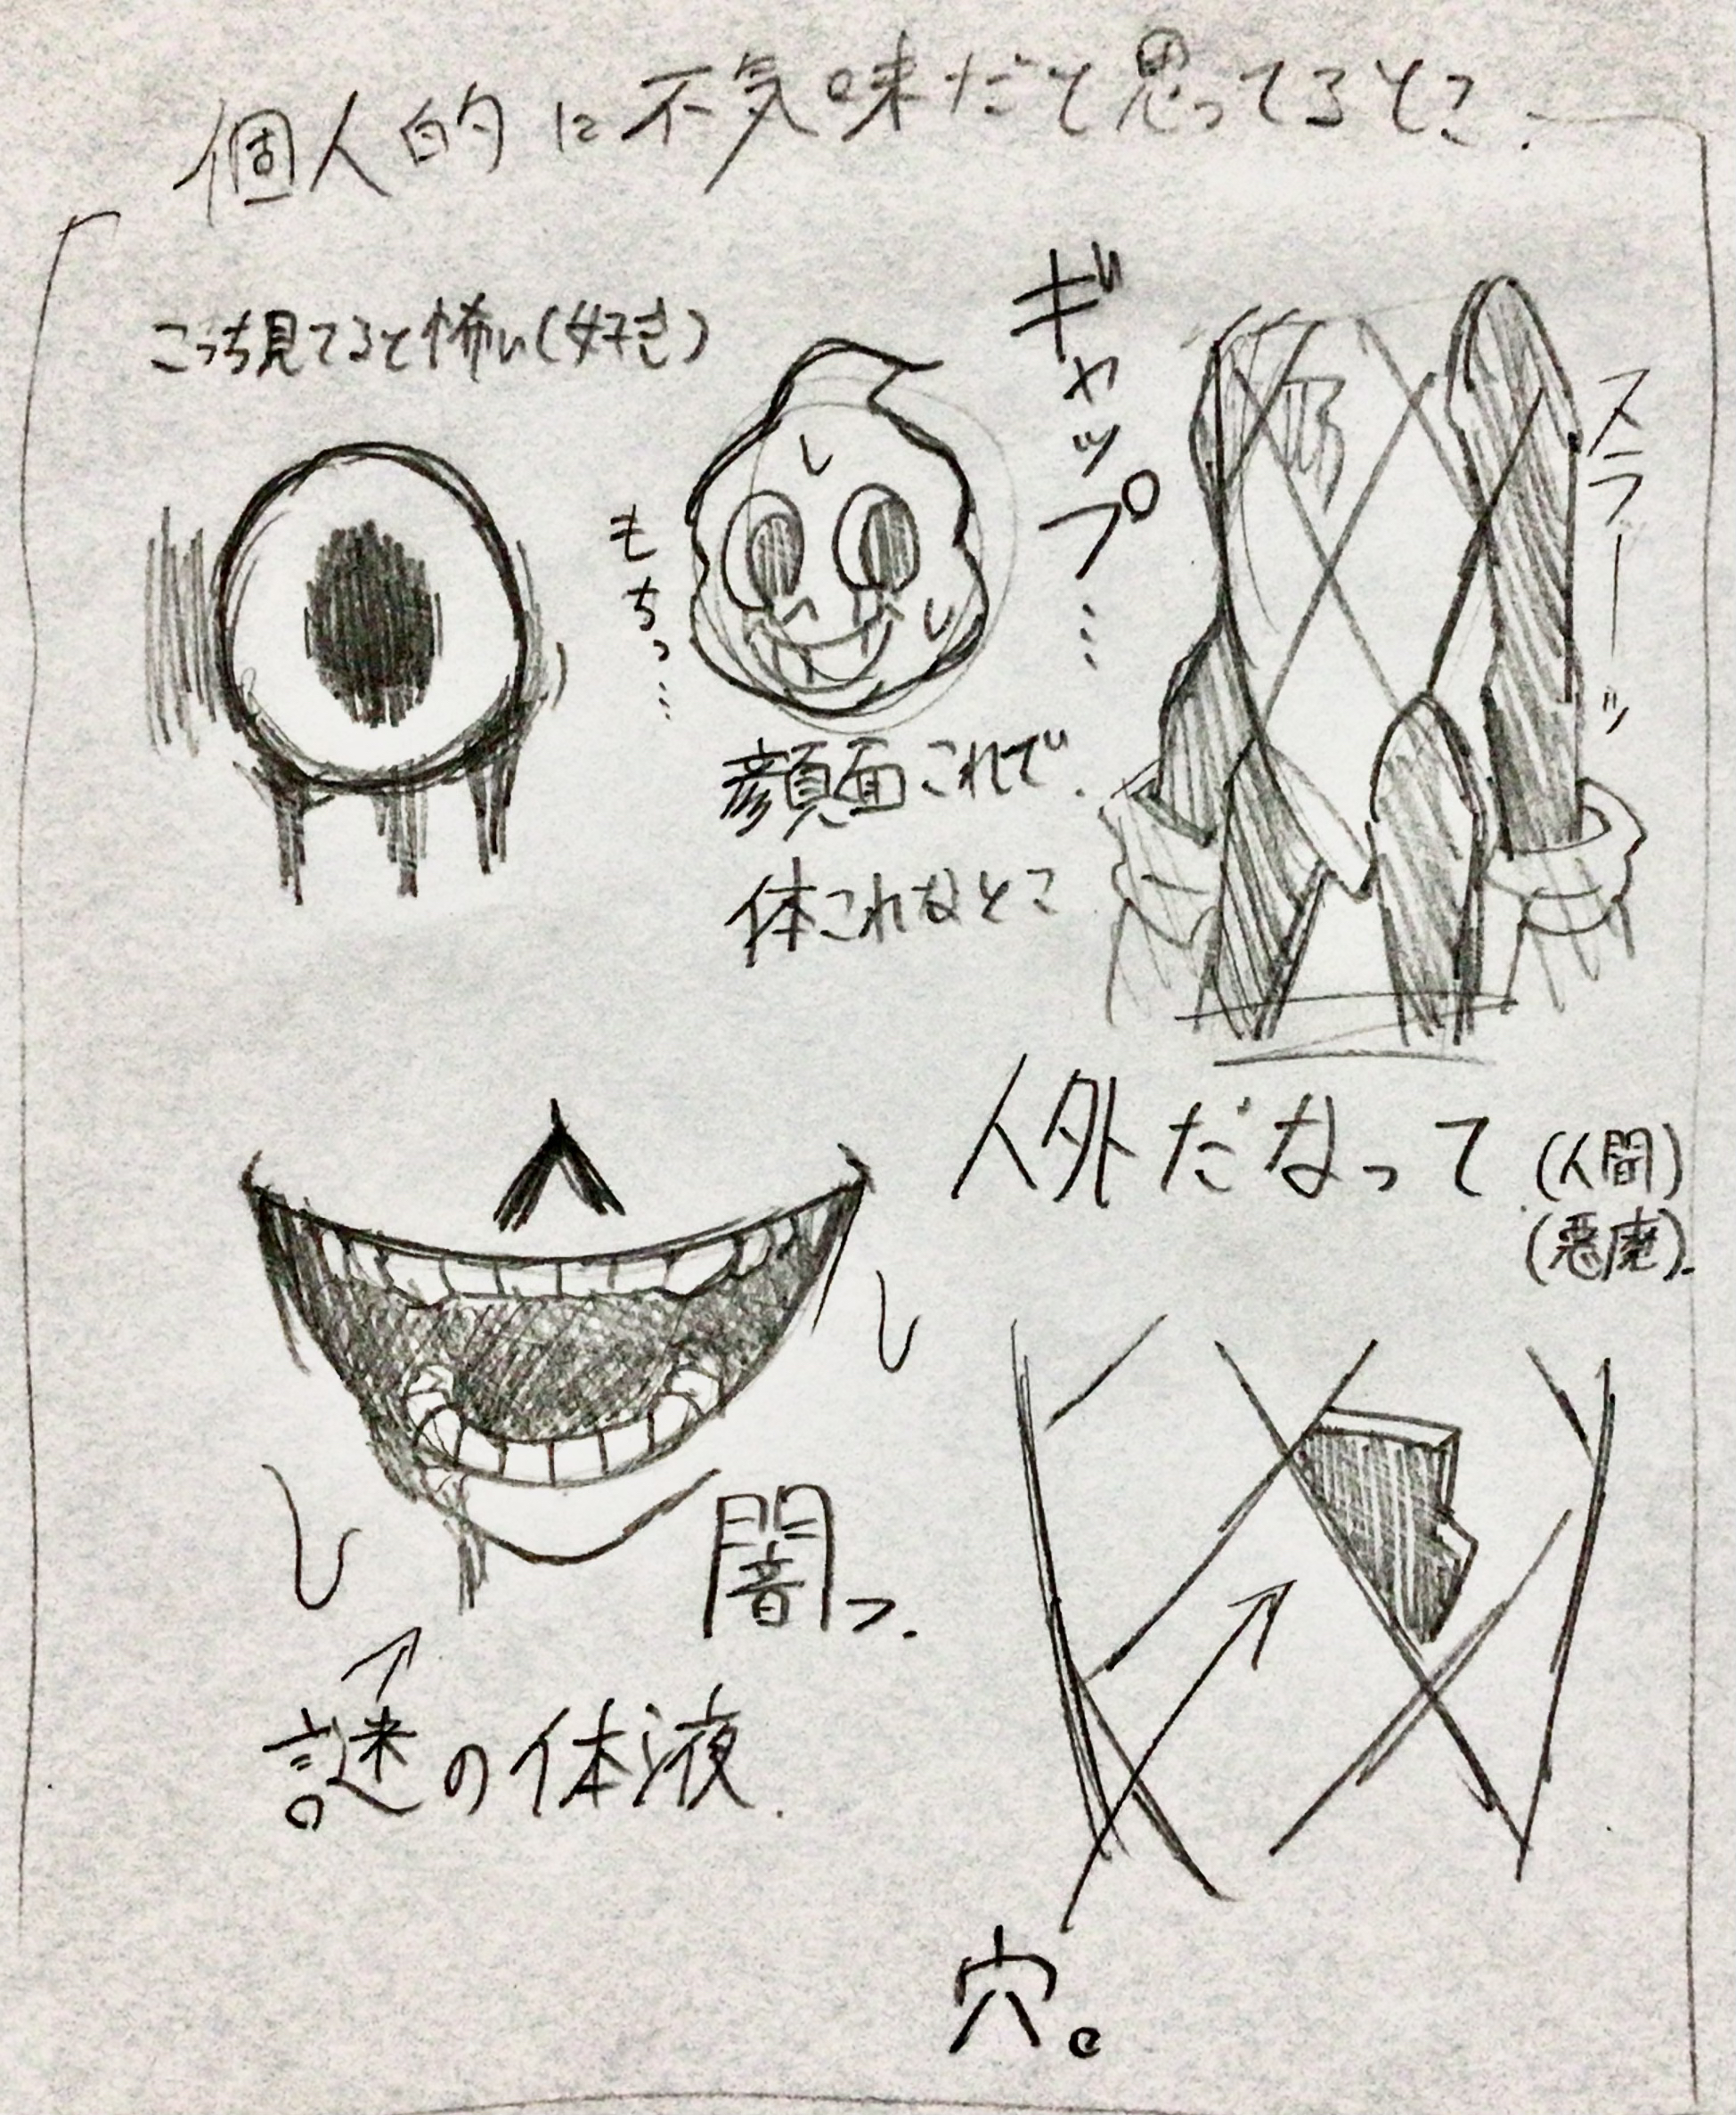 個人的に不気味だと思ってるとこ.
こっち見てると怖い(好き)
もちっ…
ギャップ…
スラーーッ
顔面これで.
体これなとこ
人外だなって
(人間)
(悪魔).
闇っ.
謎の体液.
穴。